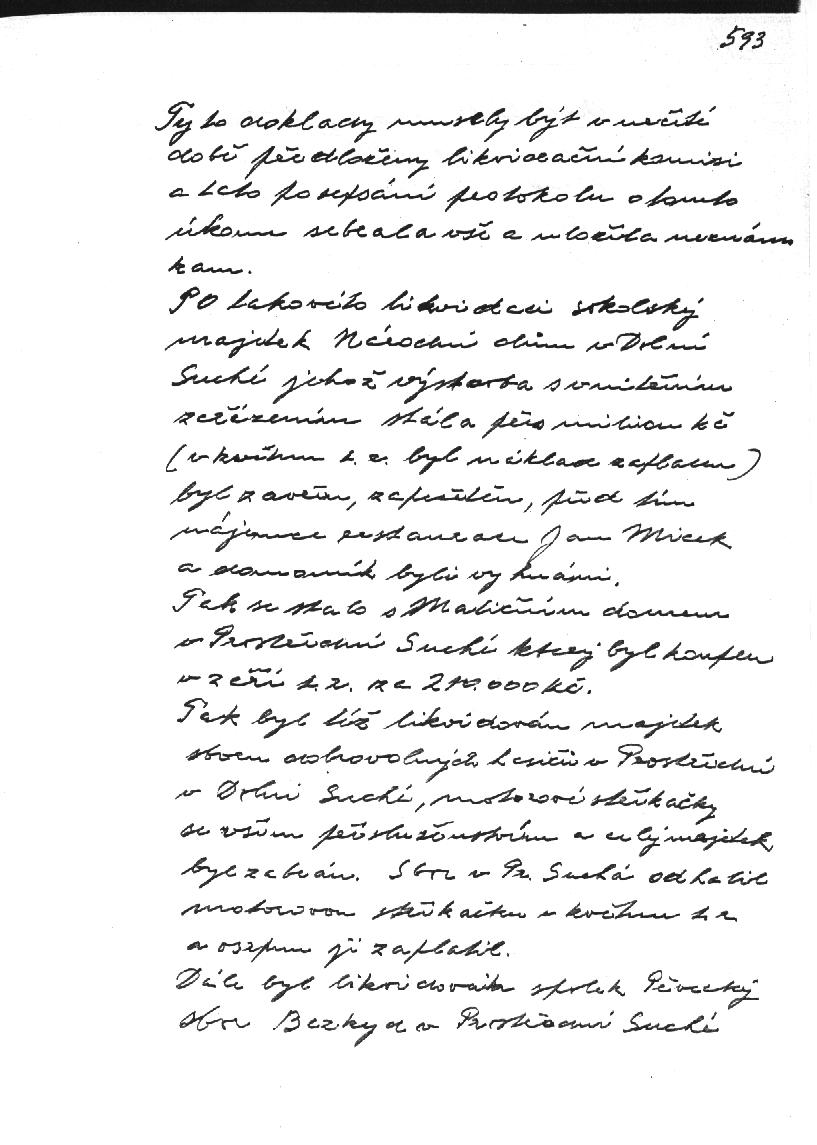 593
Tyto doklady musely být v určité
době předloženy likvidační komisi
a tato po sepsání protokolu o tomto
úkonu sebrala vše a uložila neznámo
kam.
Po takovéto likvidaci sokolský
majetek Národní dům v Dolní
Suché jehož výstavba s vnitřním
zařízením stála přes milion kč
(v květnu t. r. byl náklad zaplacen)
byl zavřen, zapečetěn, před tím
nájemce restaurace Jan Micek
a domovník byli vyhnáni.
Tak se stalo s Matičním domem
v Prostřední Suché který byl koupen
v září t. r. za 210.000 kč.
Tak byl též likvidován majetek
sboru dobrovolných hasičů v Prostřední
v Dolní Suché, motorové stříkačky
se vším příslušenstvím a celý majetek
byl zabrán. Sbor v Pr. Suchá odhalil
motorovou stříkačku v květnu t. r.
a v srpnu ji zaplatil.
Dále byl likvidován spolek Pěvecký
sbor Bezkyd v Prostřední Suché